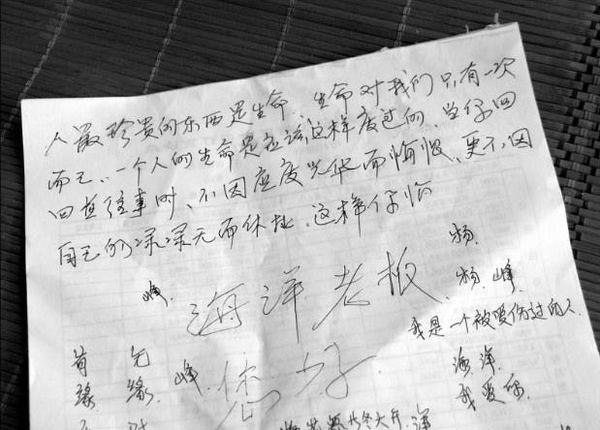 人最珍贵的东西是生命、生命对我们只有一次
而已、一个人的生命是应该这样度过的、当仔回
回首往事时、不因虚度光华而悔恨、更不因
自己的碌碌无而休耻、这样仔临
杨
峰 海洋老板 杨 峰
我是一个被受伤过的人
有 无 峰 您好 海洋
缘 缘 我爱你